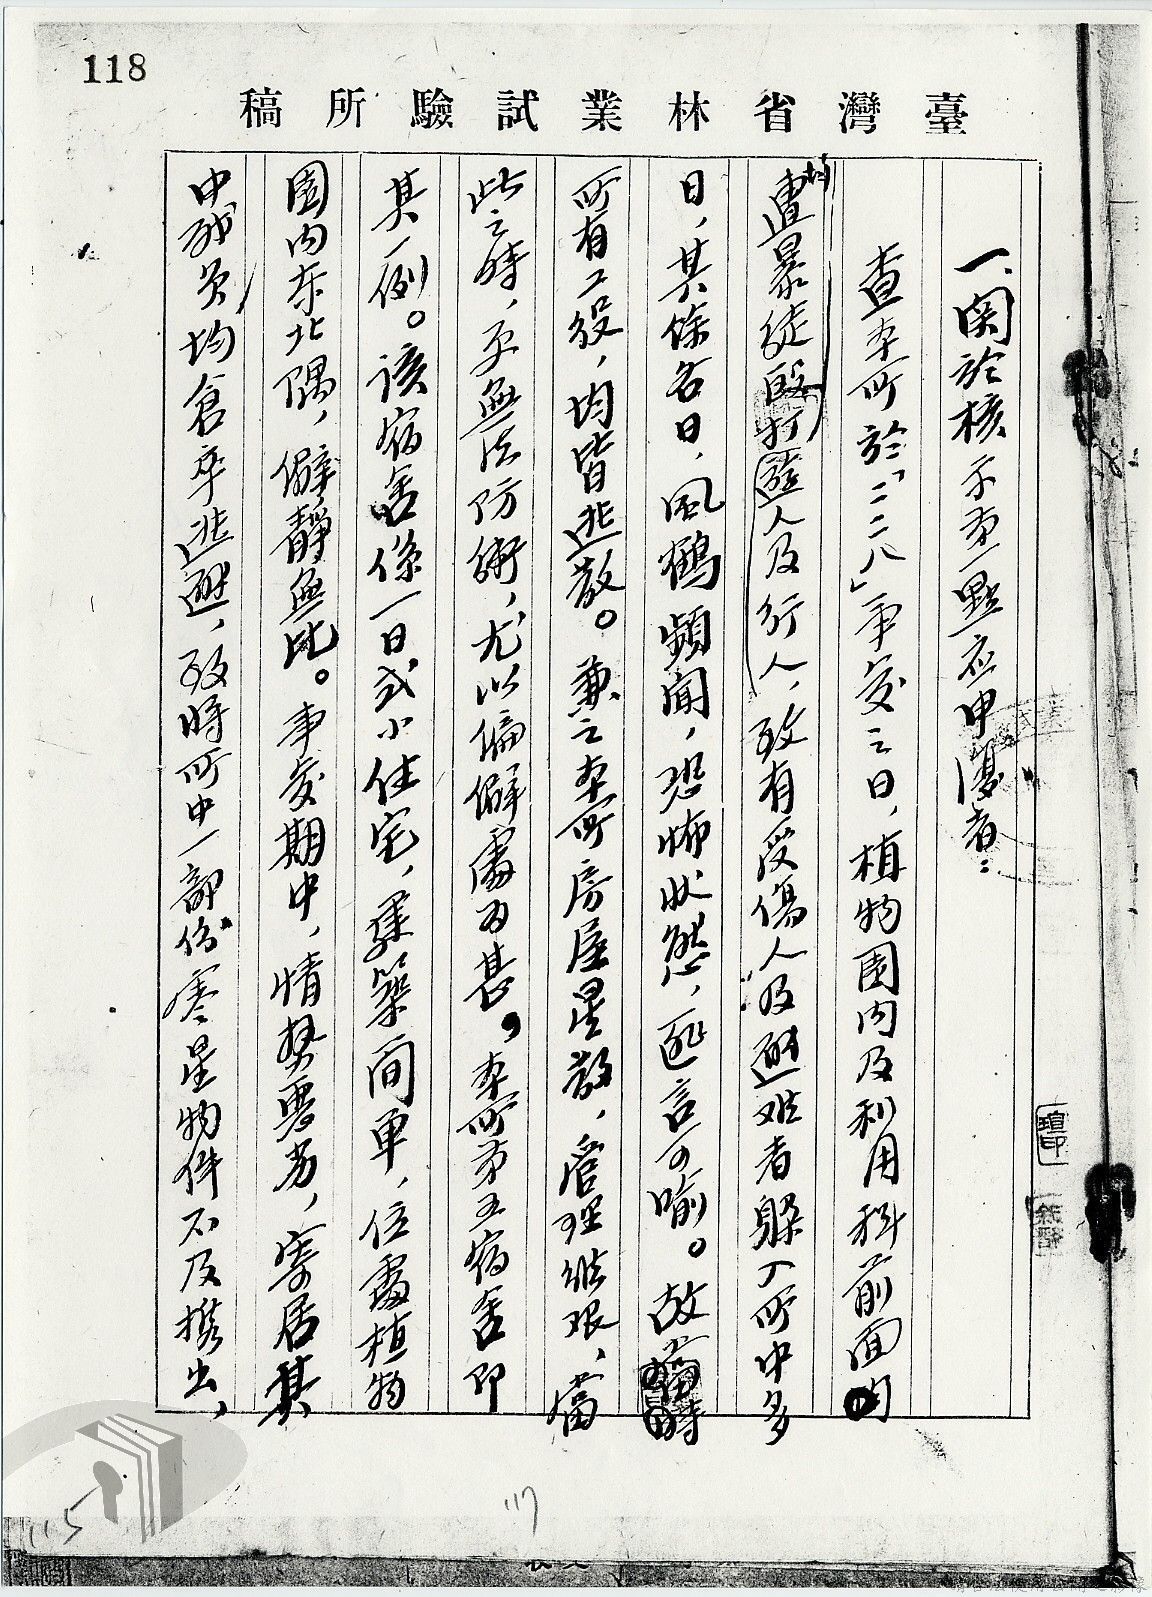 118
臺灣省林業試驗所稿
一、関於核示第一點应申復者：
查本所於「二二八」事变之日，植物園内及利用科前面
均遭暴徒毆打遊人及行人，致有受傷人及避难者躲入所中多
日，其餘各日，風鶴頻聞，恐怖狀態，匪言可喻。故當時
所有工役，均皆逃散。兼之本所房屋星散，管理維艰，當
此之時，更無法防衛，尤以偏僻處為甚。本所第五宿舍即
其一例。該宿舍係一日式小住宅，建築简单，位處植物
園内东北隅，僻靜無比。事变期中，情势惡劣，寄居其
中职员均倉卒逃避，致時所中一部份零星物件不及携出，
117
115